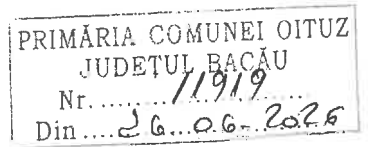 PRIMĂRIA COMUNEI OITUZ
JUDEȚUL BACĂU
Nr. ........11919........
Din ....26...06.-2026